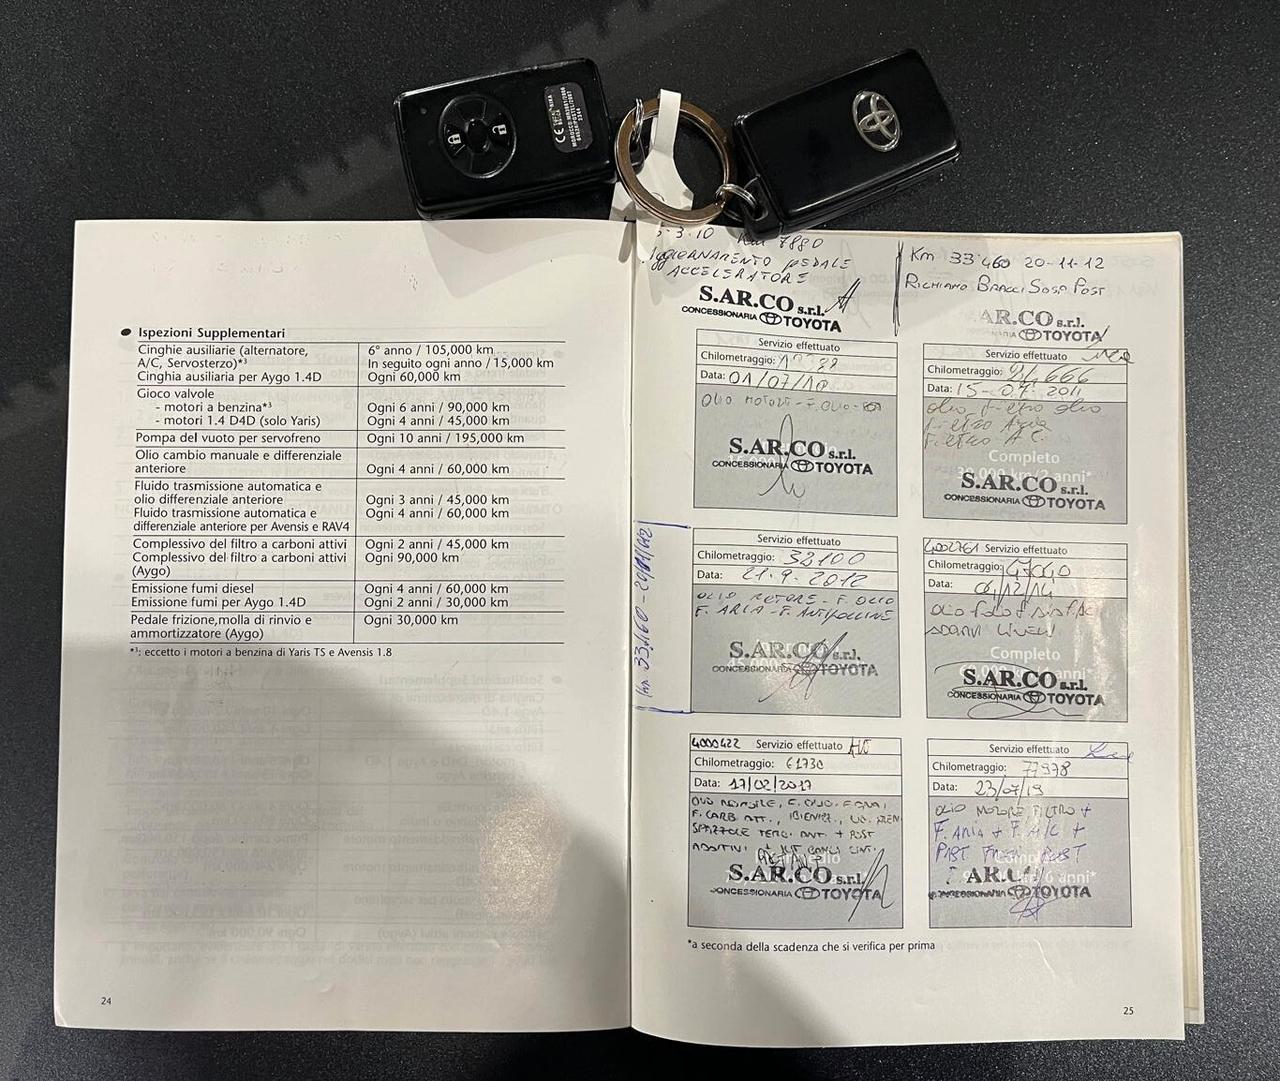 Ispezioni Supplementari
Cinghie ausiliarie (alternatore,
A/C, Servosterzo)*³
6° anno / 105,000 km
In seguito ogni anno / 15,000 km
Cinghia ausiliaria per Aygo 1.4D
Ogni 60,000 km
Gioco valvole
- motori a benzina*³
Ogni 6 anni / 90,000 km
- motori 1.4 D4D (solo Yaris)
Ogni 4 anni / 45,000 km
Pompa del vuoto per servofreno
Ogni 10 anni / 195,000 km
Olio cambio manuale e differenziale
anteriore
Ogni 4 anni / 60,000 km
Fluido trasmissione automatica e
olio differenziale anteriore
Ogni 3 anni / 45,000 km
Fluido trasmissione automatica e
differenziale anteriore per Avensis e RAV4
Ogni 4 anni / 60,000 km
Complessivo del filtro a carboni attivi
Ogni 2 anni / 45,000 km
Complessivo del filtro a carboni attivi
(Aygo)
Ogni 90,000 km
Emissione fumi diesel
Ogni 4 anni / 60,000 km
Emissione fumi per Aygo 1.4D
Ogni 2 anni / 30,000 km
Pedale frizione,molla di rinvio e
ammortizzatore (Aygo)
Ogni 30,000 km
*³: eccetto i motori a benzina di Yaris TS e Avensis 1.8
24
3.10 KM 7880
AGGIORNAMENTO PEDALE
ACCELERATORE
S.AR.CO s.r.l.
CONCESSIONARIA TOYOTA
Km 33.460 20-11-12
RICHIAMO BRACCI SOSP. POST
AR.CO s.r.l.
CONCESSIONARIA TOYOTA
Servizio effettuato
Chilometraggio:
Data: 01/07/10
OLIO MOTORE - F. OLIO -
S.AR.CO s.r.l.
CONCESSIONARIA TOYOTA
Servizio effettuato
Chilometraggio: 21.666
Data: 15-07.2011
olio Filtro olio
Filtro Aria
Filtro A C.
Completo
30,000 km/2 anni*
S.AR.CO s.r.l.
CONCESSIONARIA TOYOTA
Km 33.460 - 20/11/012
Servizio effettuato
Chilometraggio: 32100
Data: 21.9.2012
OLIO MOTORE - F. OLIO
F. ARIA - F. ANTIPOLLINE
S.AR.CO s.r.l.
CONCESSIONARIA TOYOTA
4002761 Servizio effettuato
Chilometraggio:
Data: 06/12/14
LIVELLI
Completo
S.AR.CO s.r.l.
CONCESSIONARIA TOYOTA
4000422 Servizio effettuato
Chilometraggio: 61730
Data: 17/02/2017
F. CARB
SPAZZOLE TERG. ANT. + POST
ADDITIVI + KIT
S.AR.CO s.r.l.
CONCESSIONARIA TOYOTA
Servizio effettuato
Chilometraggio: 77978
Data: 23/07/19
OLIO MOTORE FILTRO +
F. ARIA + F. A/C +
POST
AR.
CONCESSIONARIA TOYOTA
*a seconda della scadenza che si verifica per prima
25